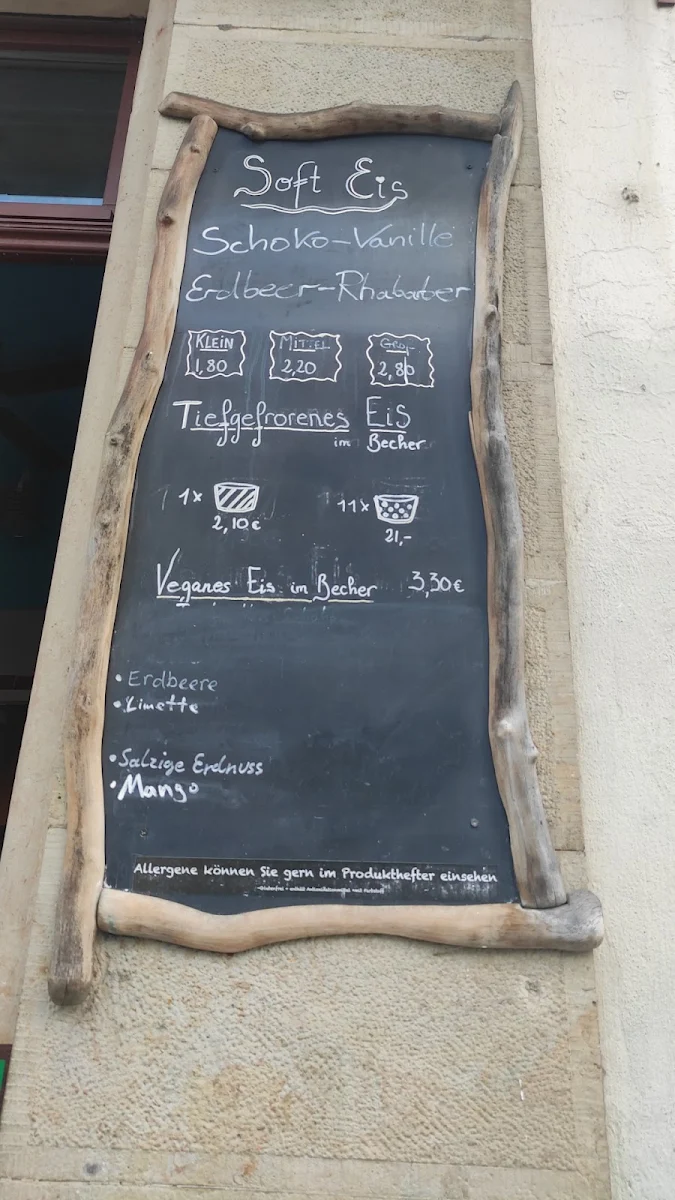 Soft Eis
Schoko-Vanille
Erdbeer-Rhabarber
KLEIN MITTEL GROß
1,80 2,20 2,80
Tiefgefrorenes Eis
im Becher
1x 11x
2,10€ 21,-
Veganes Eis im Becher 3,30€
• Erdbeere
• Limette
• Salzige Erdnuss
• Mango
Allergene können Sie gern im Produkthefter einsehen